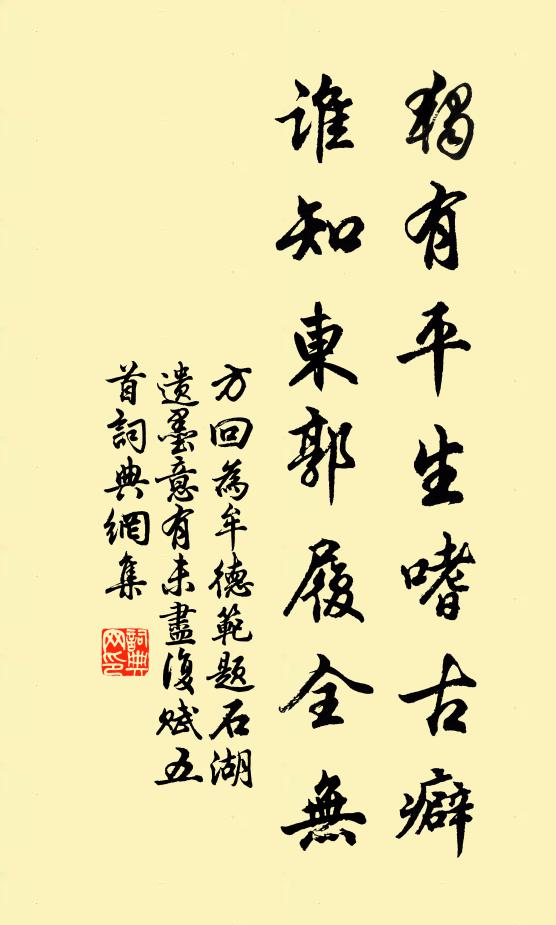 獨有平生嗜古癖
誰知東郭履全無
方回為牟德範題石湖
遺墨意有未盡復賦五
首詞典網集
詞典
网印